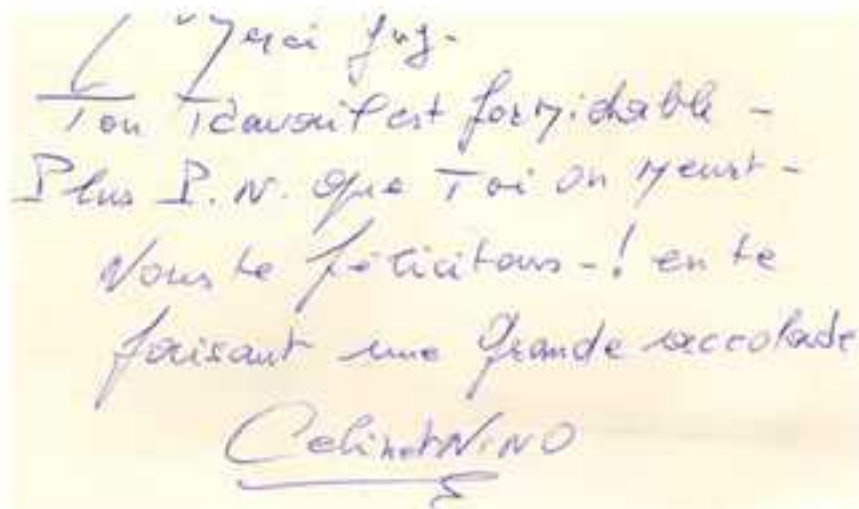 Merci
Ton Travail est formidable -
Plus P.N. que Toi on meurt -
Nous te félicitons - ! en te
faisant une grande accolade
Celinet NINO